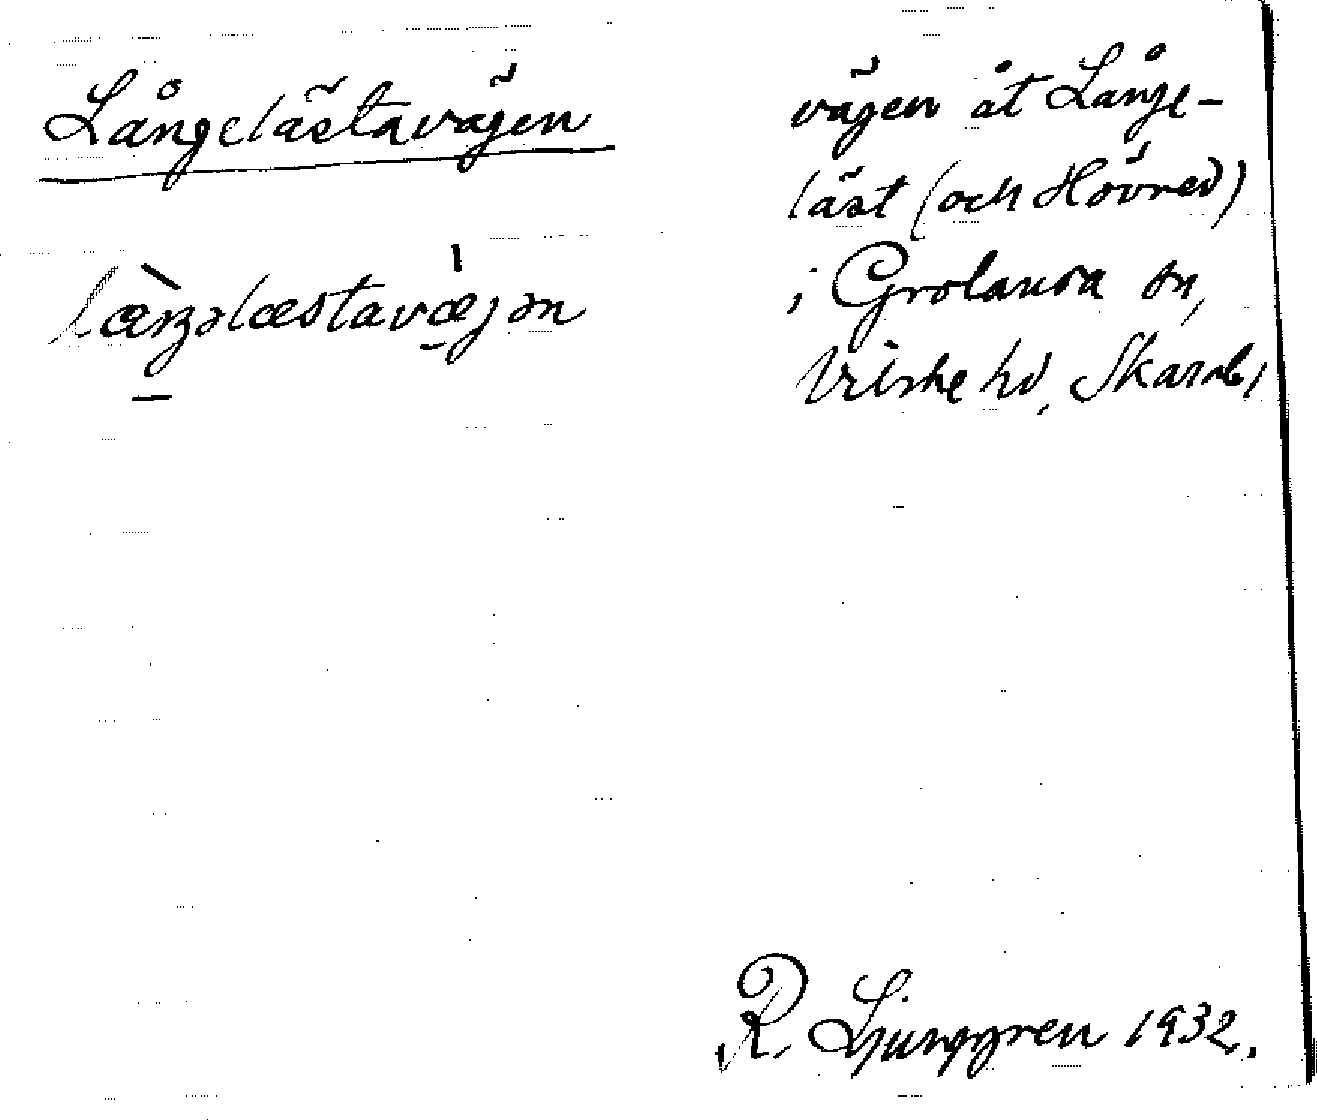 Långelästavägen
læŋəlæstavæjən
vägen åt Långe-
läst (och Hövred)
i Grolanda sn,
Vilske hd, Skarab.
R. Ljunggren 1932.